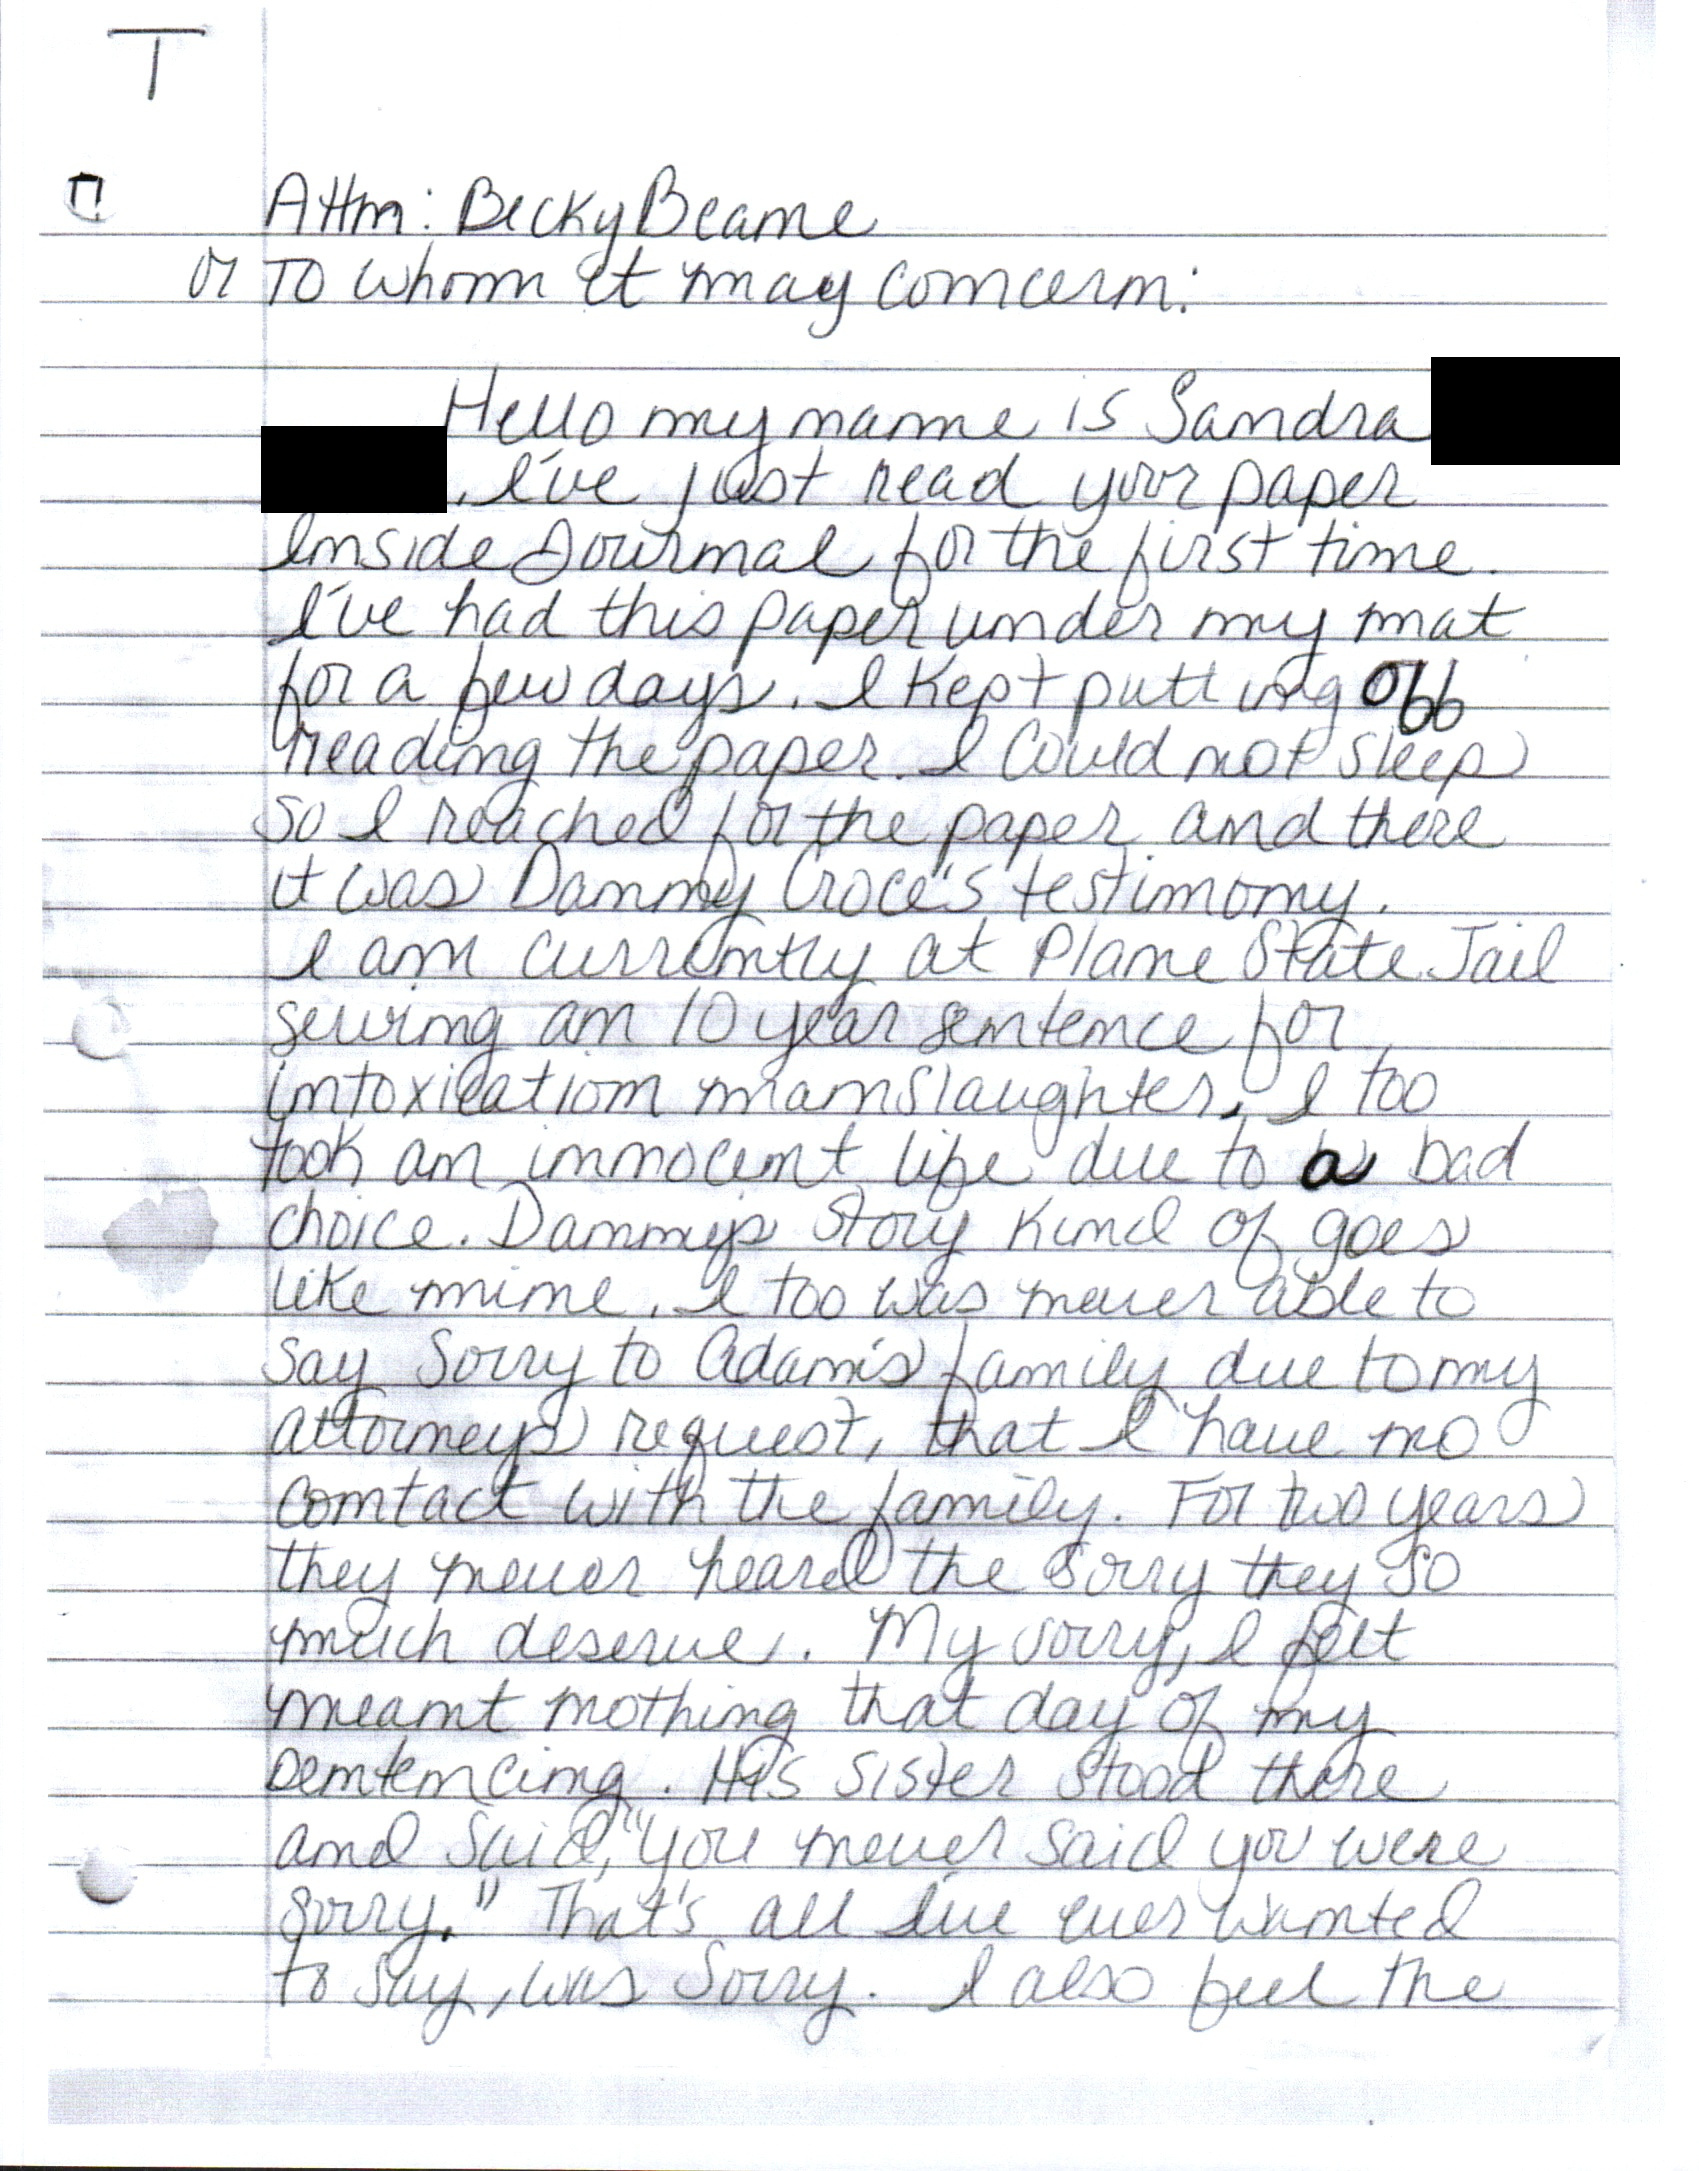 T
Attn: Becky Beane
or To Whom it may concern:
Hello my name is Sandra
. I've just read your paper
Inside Journal for the first time.
I've had this paper under my mat
for a few days. I kept putting off
reading the paper. I could not sleep
so I reached for the paper and there
it was Danny Croce's testimony.
I am currently at Plane State Jail
serving an 10 year sentence for
intoxication manslaughter. I too
took an innocent life due to a bad
choice. Danny's story kind of goes
like mine. I too was never able to
say sorry to Adam's family due to my
attorneys request, that I have no
contact with the family. For two years
they never heard the sorry they so
much deserve. My sorry, I felt
meant nothing that day of my
sentencing. His sister stood there
and said, "you never said you were
sorry." That's all I've ever wanted
to say, was sorry. I also feel the